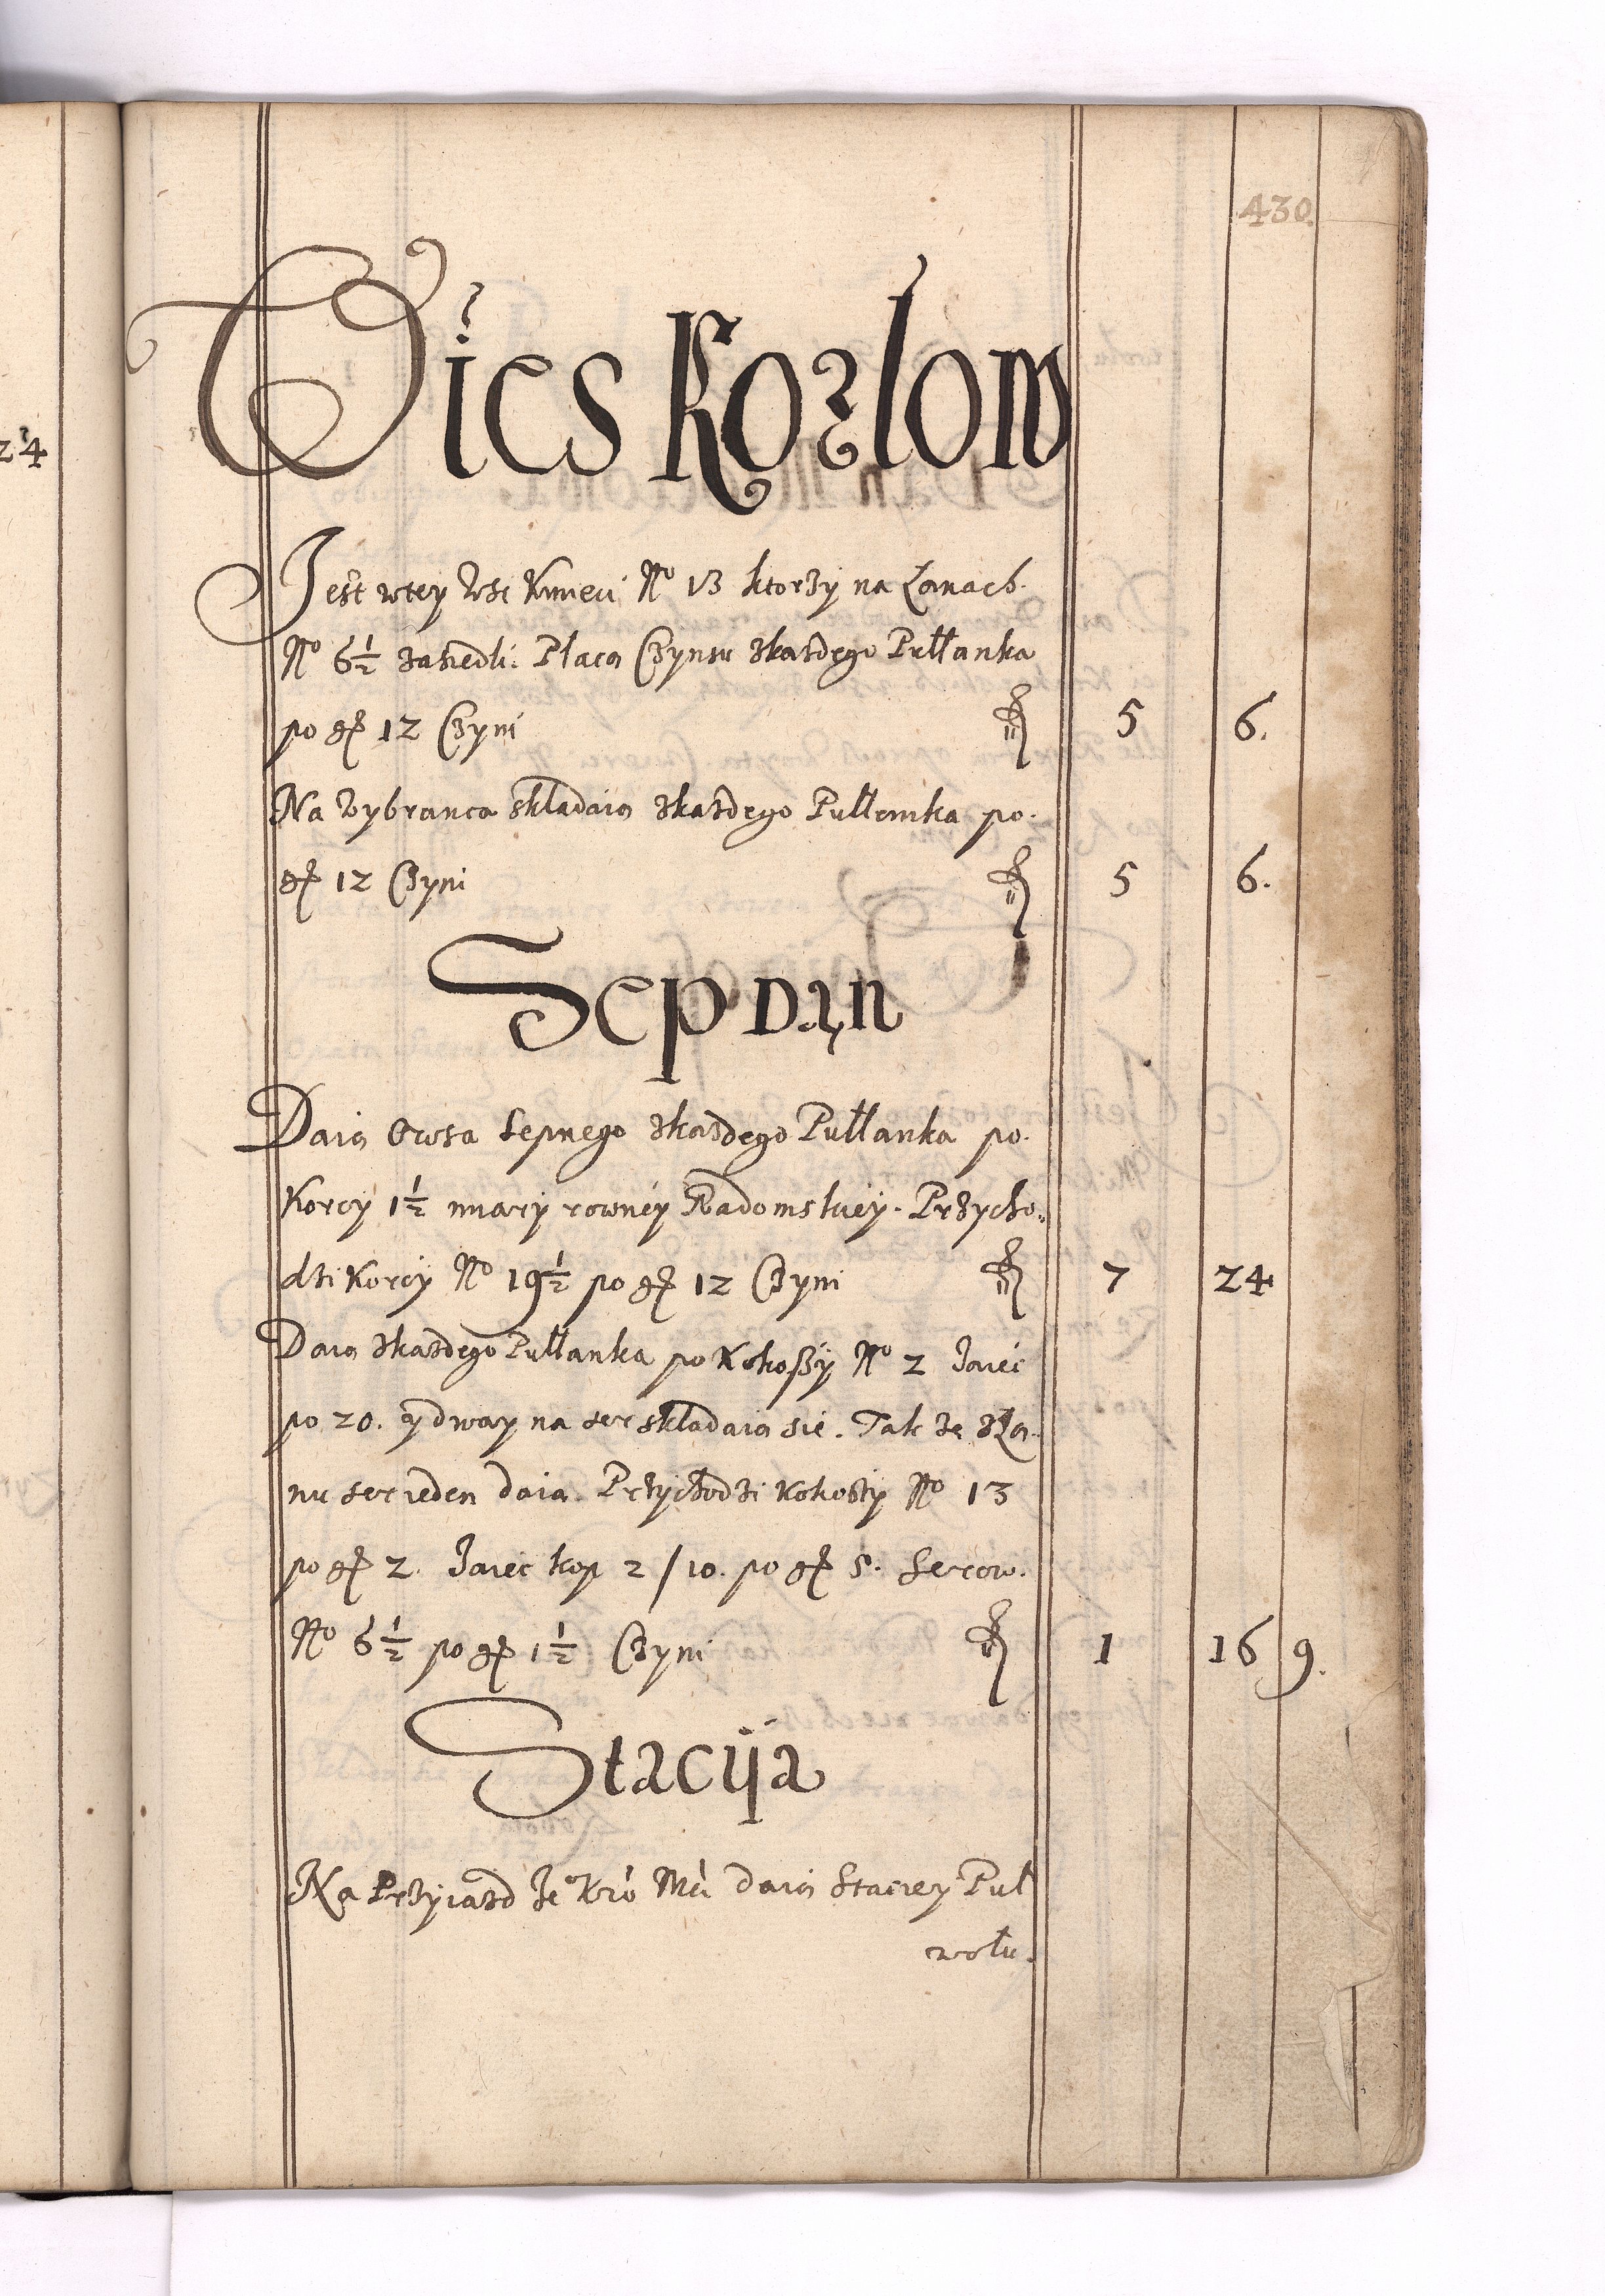 430.
Wies Kozlow
Jest wtey Wsi Kmieci No 13 ktorzy na Łanach.
No 6½ zasiedli. Płacą Czynsu zkazdego Pułłanka
po gr 12 Czyni fl 5 6.
Na Wybranca składaią zkazdego Pułłanka po.
gr 12 Czyni fl 5 6.
Sep Dań
Daią Owsa Sepnego zkazdego Pułłanka po.
Korcy 1½ miary rowney Radomskiey. Przycho.
dzi Korcy No 19½ po gr 12 Czyni fl 7 24
Daią zkazdego Pułłanka po Kokoszy No 2 Iaiec
po 20. y dway na ser składaią sie. Tak ze zŁa.
nu ser ieden daią. Przychodzi kokoszy No 13
po gr 2. Iaiec kop 2/10. po gr 5. Serow.
No 6½ po gr 1½ Czyni fl 1 16 9.
Stacija
Na Przyiazd Je° Kró Mći daią Staciey Puł
wołu.
24